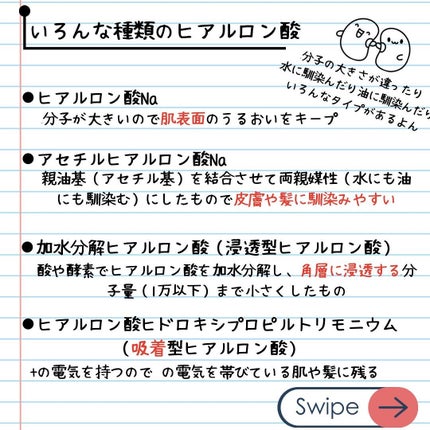 いろんな種類のヒアルロン酸
分子の大きさが違ったり
水に馴染んだり油に馴染んだり
いろんなタイプがあるよん
●ヒアルロン酸Na
分子が大きいので肌表面のうるおいをキープ
●アセチルヒアルロン酸Na
親油基（アセチル基）を結合させて両親媒性（水にも油
にも馴染む）にしたもので皮膚や髪に馴染みやすい
●加水分解ヒアルロン酸（浸透型ヒアルロン酸）
酸や酵素でヒアルロン酸を加水分解し、角層に浸透する分
子量（1万以下）まで小さくしたもの
●ヒアルロン酸ヒドロキシプロピルトリモニウム
（吸着型ヒアルロン酸）
+の電気を持つので の電気を帯びている肌や髪に残る
Swipe